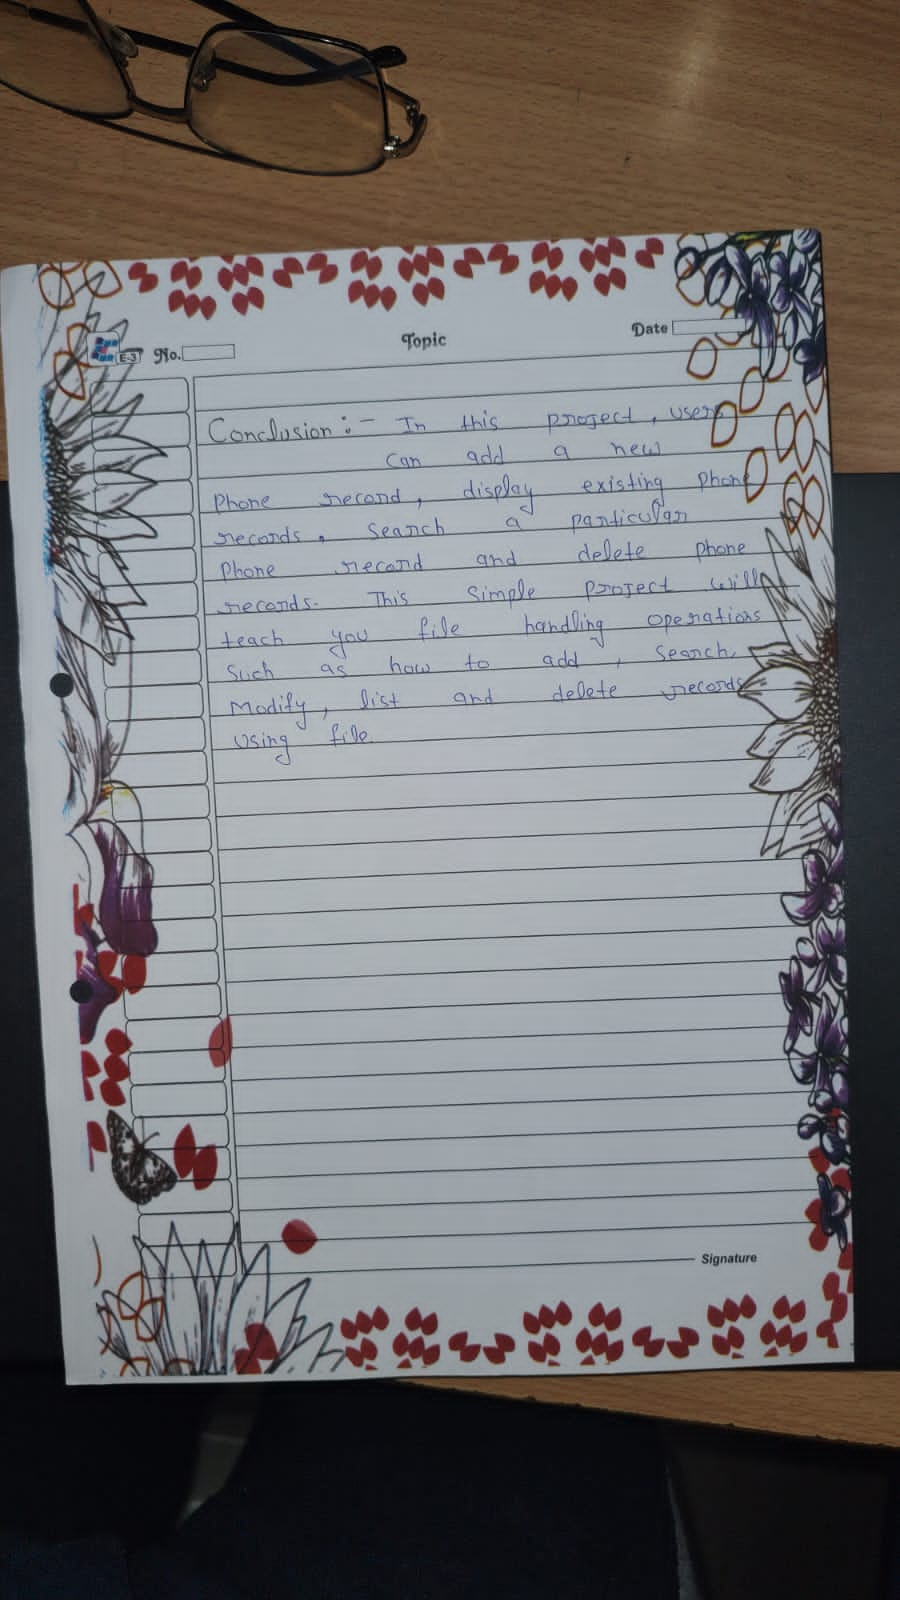 E-3 No. Topic Date
Conclusion :- In this project, users
can add a new
Phone record, display existing phone
records, search a particular
Phone record and delete phone
records. This simple project will
teach you file handling operations
such as how to add, search,
Modify, list and delete records
using file.
Signature